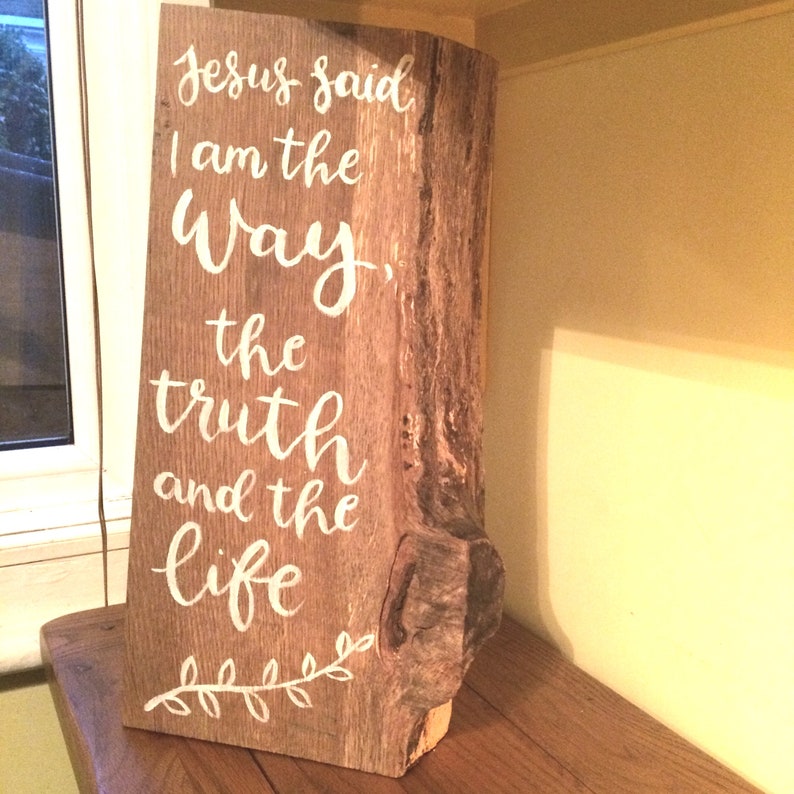 Jesus said,
I am the
Way,
the
truth
and the
life